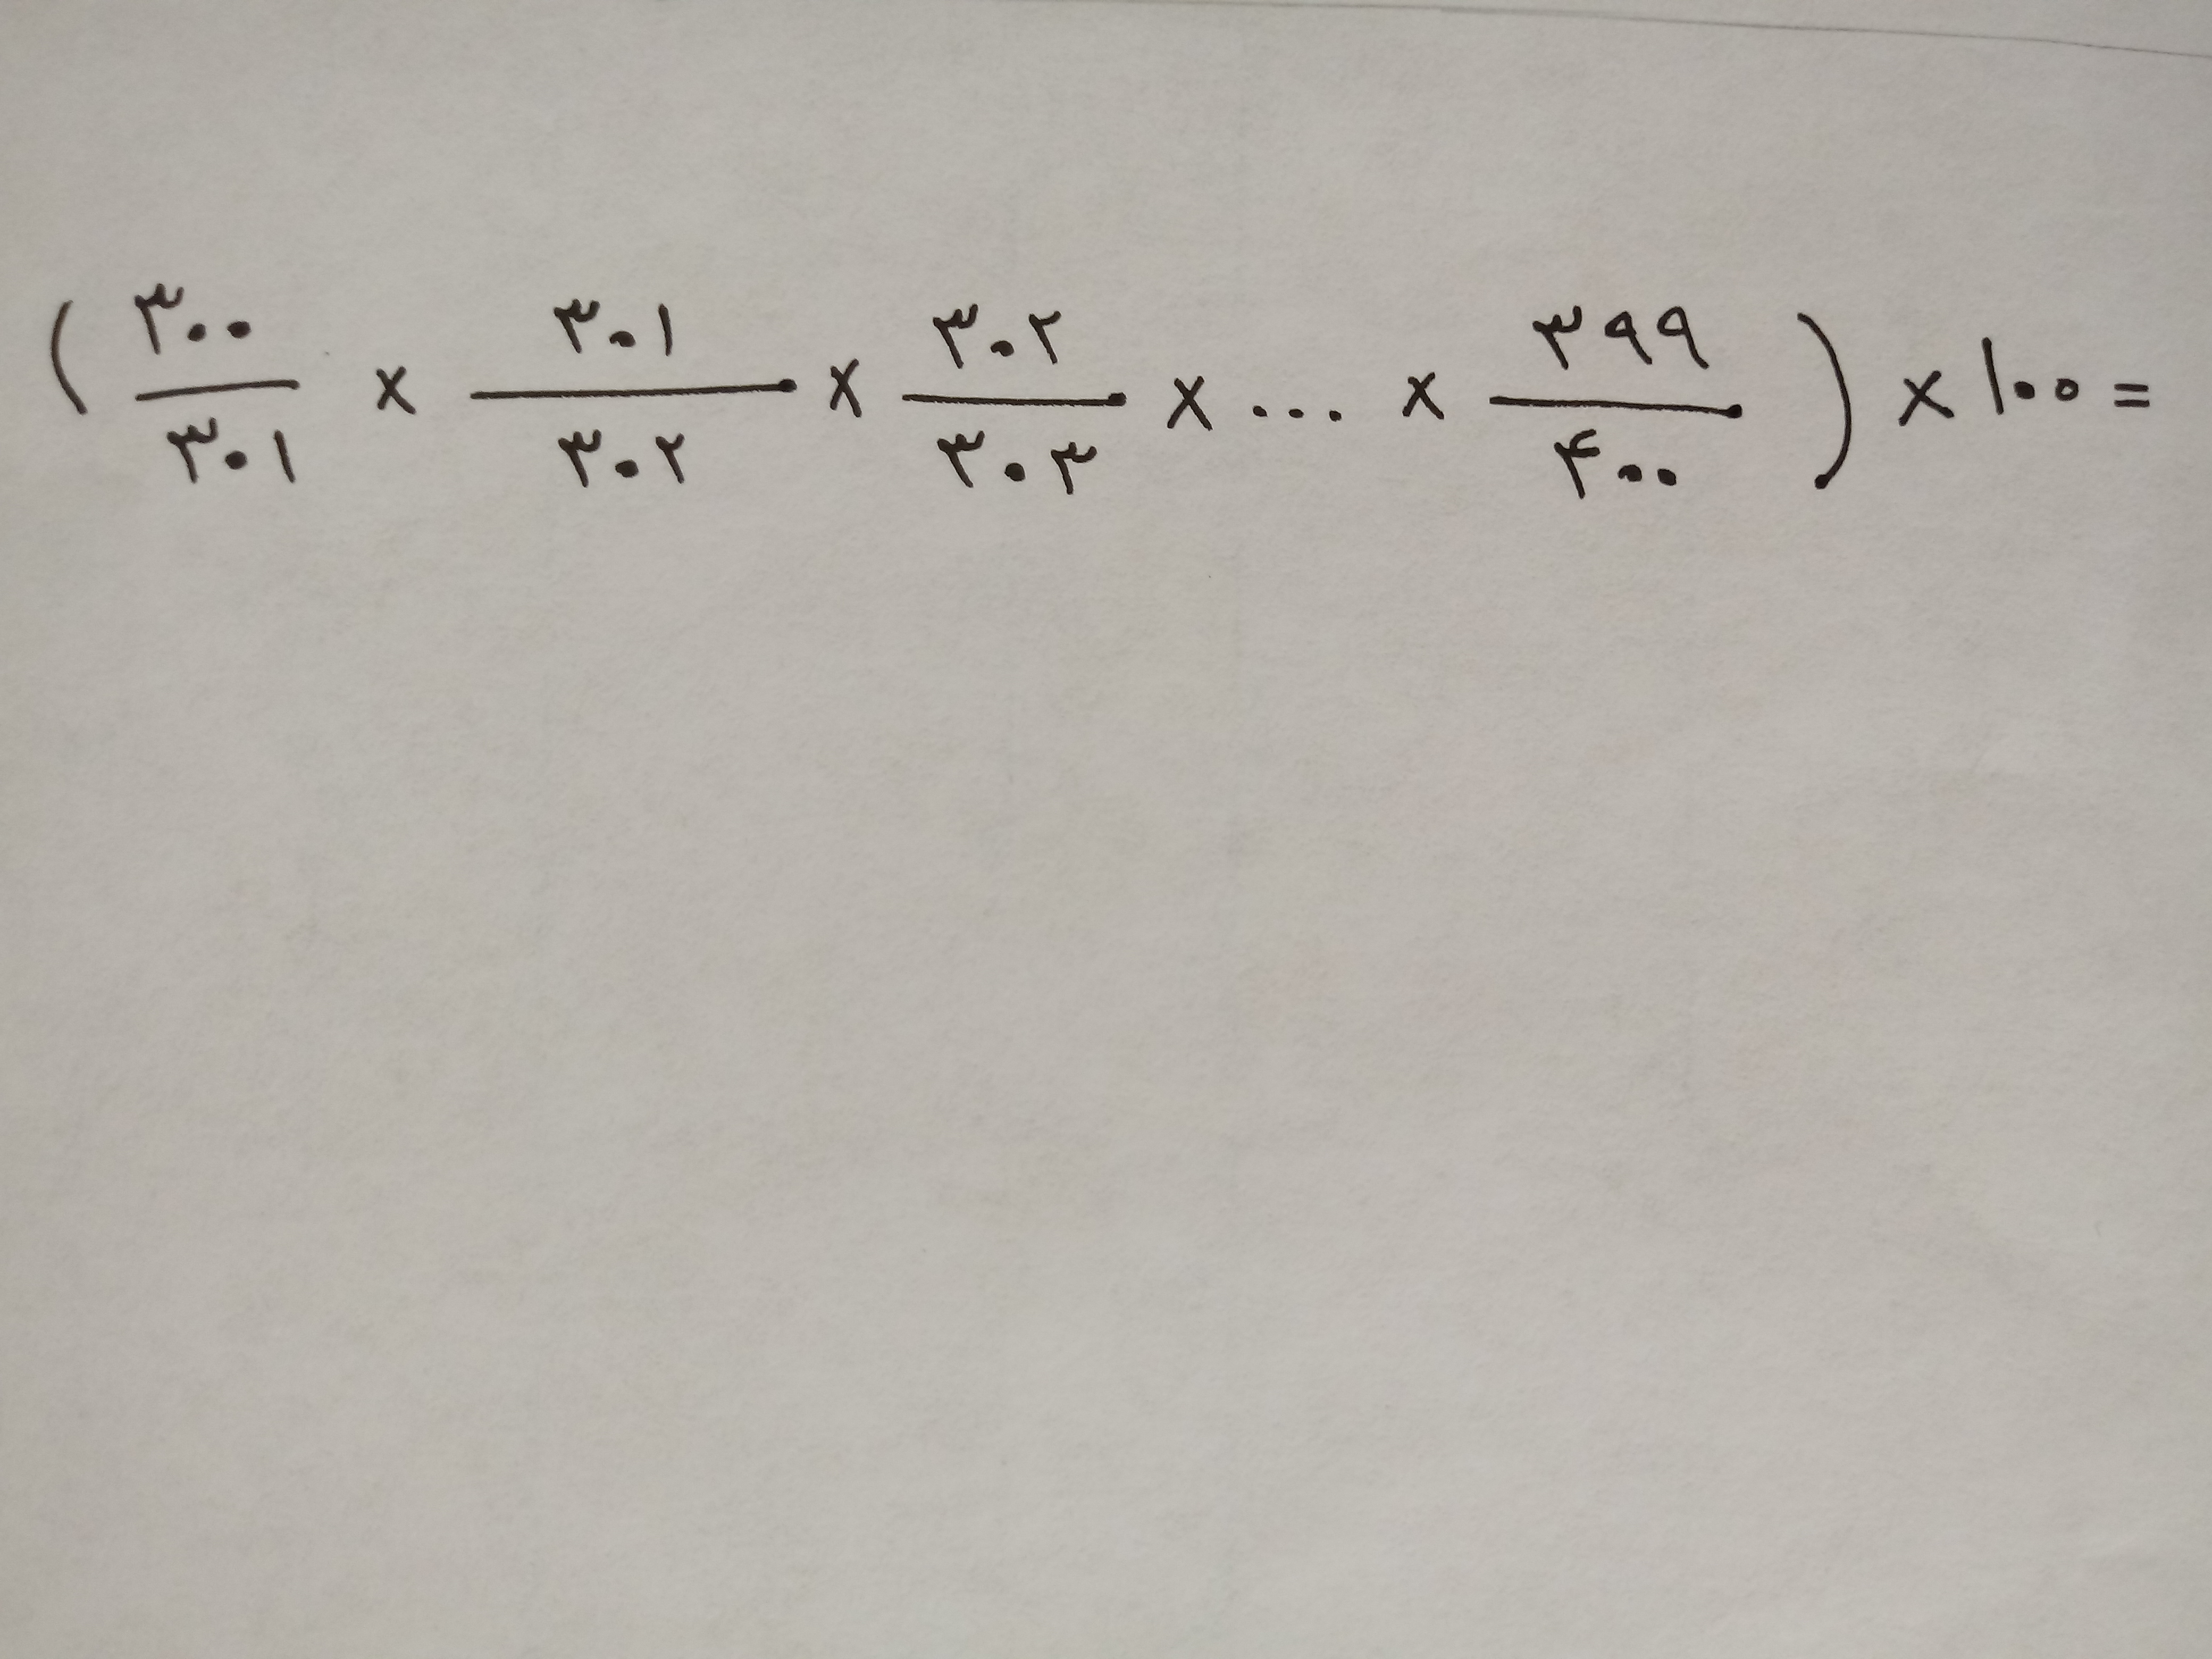 (۳۰۰/۳۰۱ × ۳۰۱/۳۰۲ × ۳۰۲/۳۰۳ × ... × ۳۹۹/۴۰۰) × ۱۰۰ =